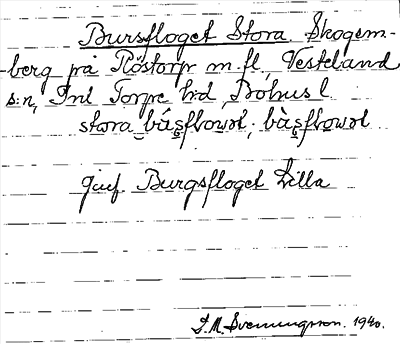 Bursfloget Stora Skogem-
berg på Röstorp m. fl. Vesteland
s:n, Inl Torpe hd, Bohus l
stora
jmf. Burgsfloget Lilla
J. M. Svenningsson. 1940.